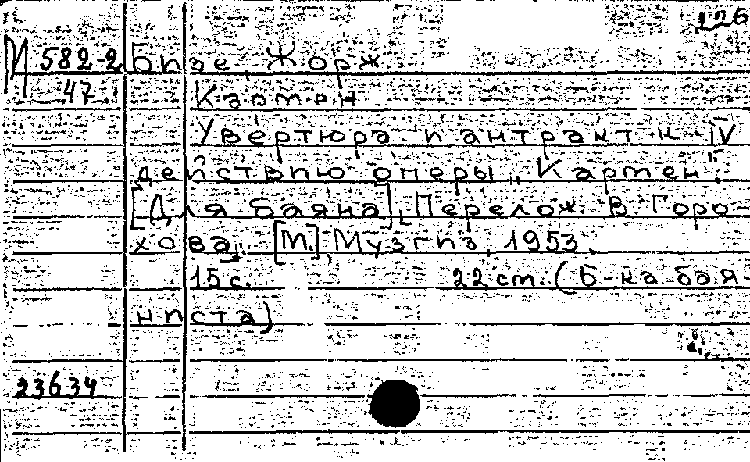 226
М 582-2 Бизе, Жорж
47 Кармен
Увертюра и антракт к IV
действию оперы „Кармен".
[Для баяна]. Перелож. В. Горо-
хова. [М.], Музгиз, 1953.
15 с. 22 см. (Б-ка бая-
ниста)
23634